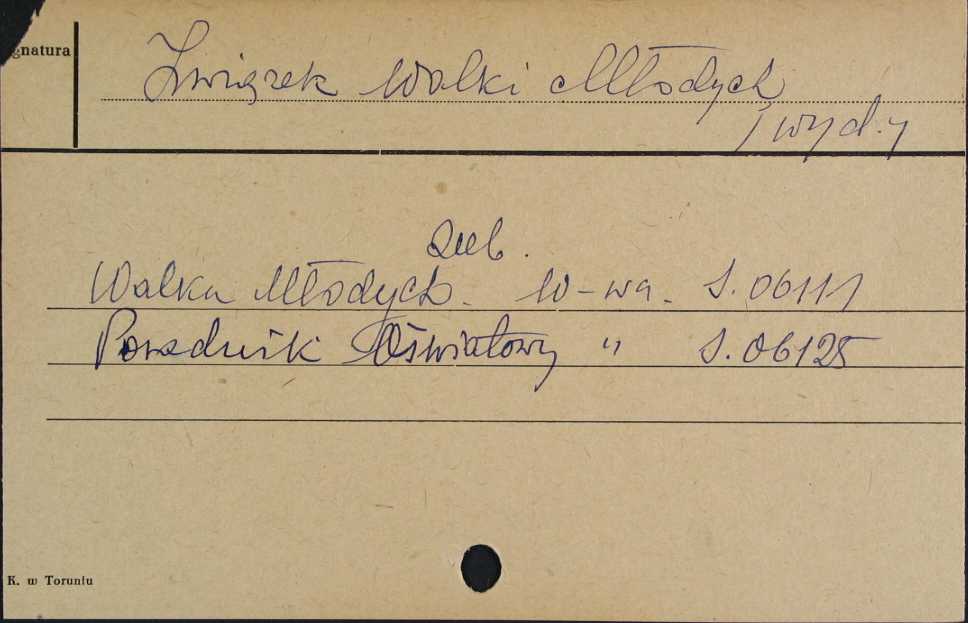 gnatura
Związek Walki Młodych
/wyd.y
zub.
Walka Młodych. W-wa. S. 06111
Poradnik Oświatowy " S. 06125
K. w Toruniu